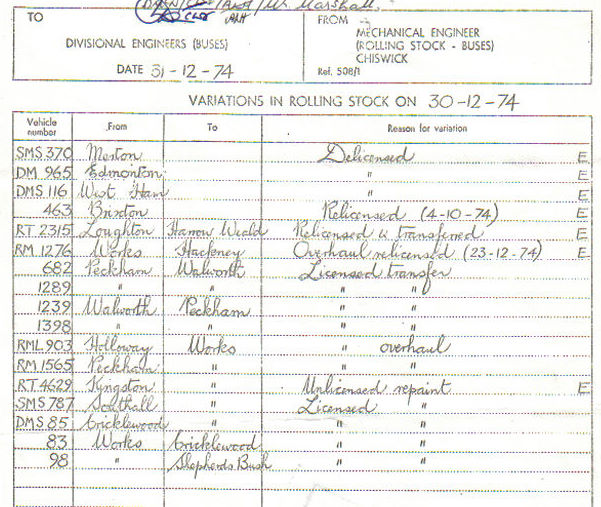 W. Marshall.
TO
DIVISIONAL ENGINEERS (BUSES)
DATE 31-12-74
FROM
MECHANICAL ENGINEER
(ROLLING STOCK - BUSES)
CHISWICK
Ref. 508/1
VARIATIONS IN ROLLING STOCK ON 30-12-74
Vehicle number From To Reason for variation
SMS 370 Merton Delicensed E
DM 965 Edmonton " E
DMS 116 West Ham " E
463 Brixton Relicensed (4-10-74) E
RT 2315 Loughton Harrow Weald Relicensed & transferred E
RM 1276 Works Hackney Overhaul relicensed (23-12-74) E
682 Peckham Walworth Licensed transfer
1289 " " " "
1239 Walworth Peckham " "
1398 " " " "
RML 903 Holloway Works " overhaul
RM 1565 Peckham " " "
RT 4629 Kingston " Unlicensed repaint E
SMS 787 Southall " Licensed "
DMS 85 Cricklewood " " "
83 Works Cricklewood " "
98 " Shepherds Bush " "